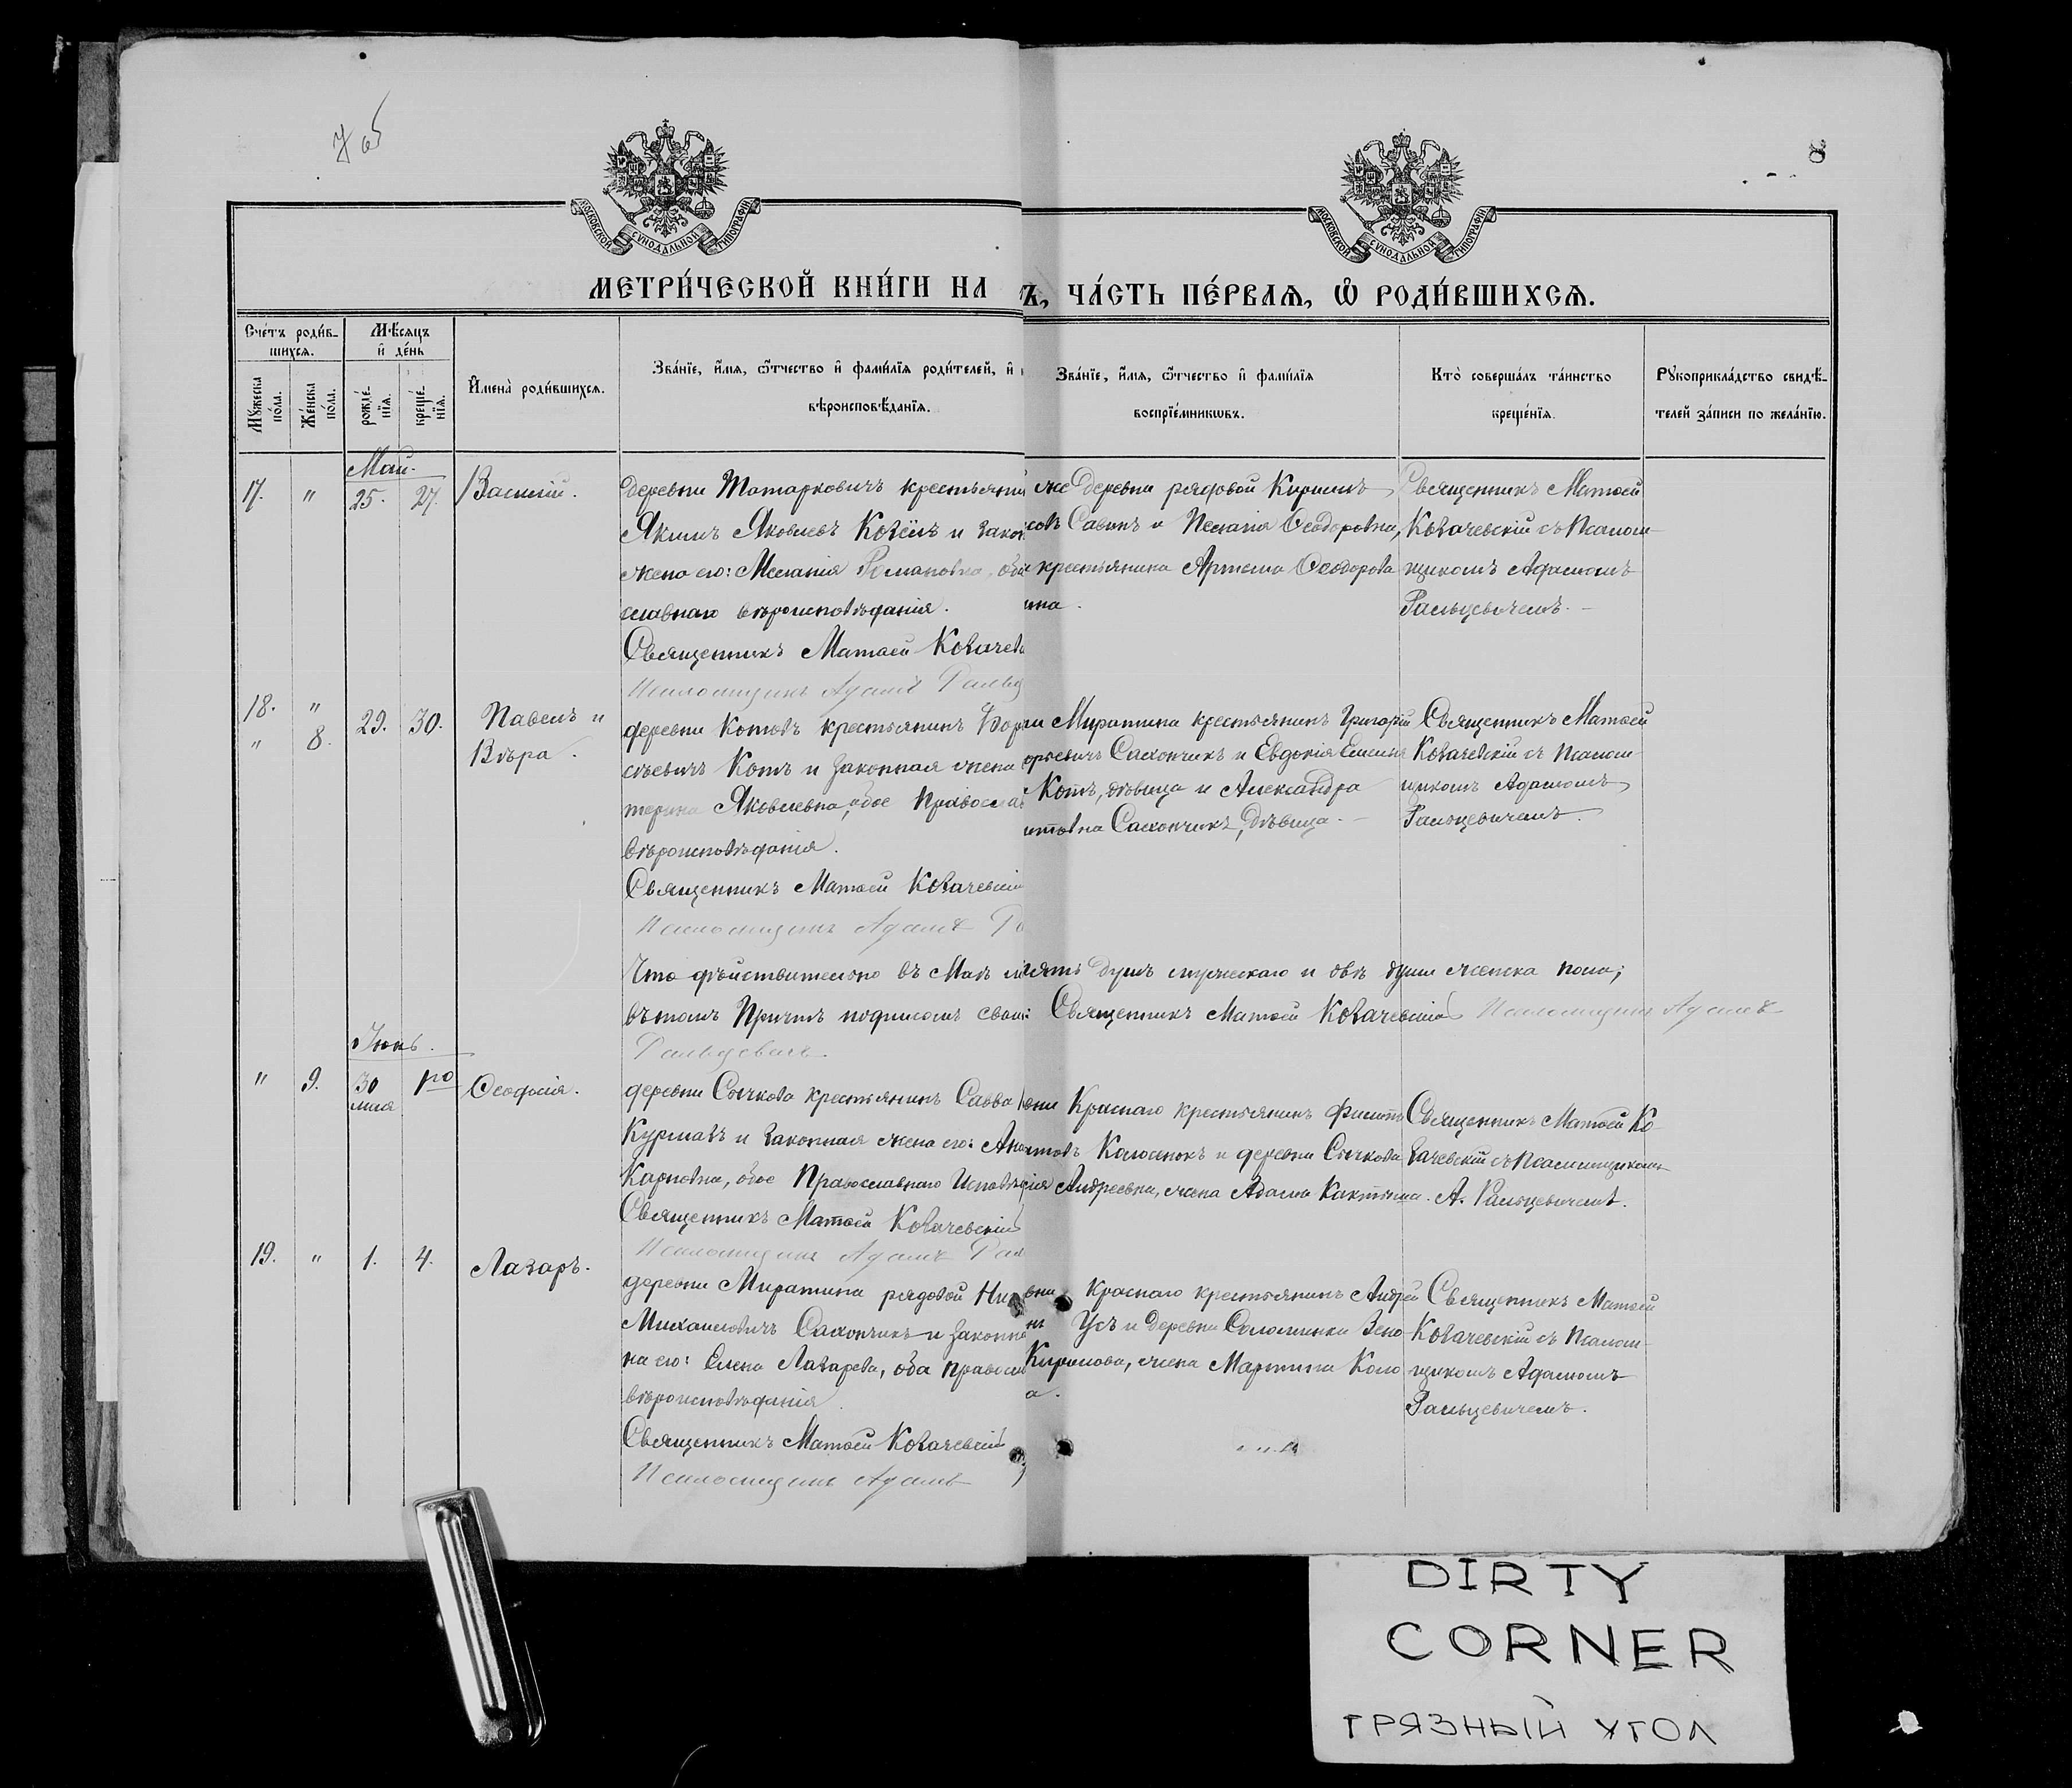 7 об
8
МОСКОВСКОЙ СУНОДАЛЬНОЙ ТИПОГРАФІИ
МОСКОВСКОЙ СУНОДАЛЬНОЙ ТИПОГРАФІИ
МЕТРИ́ЧЕСКОЙ КНИ́ГИ НА
Ъ, ЧА́СТЬ ПЕ́РВАѦ, Ѡ҆ РОДИ́ВШИХСѦ.
Сче́тъ роди́в-
шихсѧ.
Мѣ́сѧцъ
и҆ де́нь
Мꙋ́жеска по́ла.
Же́нска по́ла.
рожде́-
нїѧ.
креще́-
нїѧ.
И҆мена̀ роди́вшихсѧ.
Зва́нїе, и҆́мѧ, ѻ҆́тчество и҆ фами́лїѧ роди́телей, и҆
вѣроисповѣ́данїѧ.
Зва́нїе, и҆́мѧ, ѻ҆́тчество и҆ фами́лїѧ
воспрїе́мникѡвъ.
Кто̀ соверша́лъ та́инство
креще́нїѧ.
Рꙋкоприкла́дство свидѣ́-
телей за́писи по жела́нїю.
Май.
17. " 25. 27. Василій.
деревни Татарковичъ крестьянин
Якимъ Яковлевъ Козёлъ и закон
жена его: Меланія Романовна, оба
славнаго вѣроисповѣданія.
Священникъ Матѳей Козачев
Псаломщикъ Адамъ Ральц
же деревни рядовой Кириллъ
совъ Савинъ и Пелагія Ѳеодоровна,
крестьянина Артема Ѳеодорова
ина.
Священникъ Матѳей
Козачевскій съ Псалом-
щикомъ Адамомъ
Ральцевичемъ. –
18. "
" 8. 29. 30. Павелъ и
Вѣра.
деревни Котовъ крестьянинъ
сѣевичъ Котъ и законная жена
терина Яковлевна, обое Правосла
вѣроисповѣданія.
Священникъ Матѳей Козачевскій
Псаломщикъ Адамъ Ра
ни Миратина крестьянинъ Григорій
орьевичъ Сахончикъ и Евдокія
Котъ, дѣвица и Александра
итовна Сахончикъ, дѣвица. –
Священникъ Матѳей
Козачевскій съ Псалом-
щикомъ Адамомъ
Ральцевичемъ.
Что дѣйствительно въ Маѣ м
въ томъ Причтъ подписомъ свои
Ральцевичъ.
пять душъ мужескаго и двѣ души женска пола;
Священникъ Матѳей Козачевскій Псаломщикъ Адамъ
Іюнь.
" 9. 30 мая 1го Ѳеодосія.
деревни Сычкова крестьянинъ Савва
и законная жена его:
Карповна, обое Православнаго Исповѣ
Священникъ Матѳей Козачевскій
Псаломщикъ Адамъ Рал
вни Краснаго крестьянинъ
и деревни Сычкова
Андреевна, жена Адама
Священникъ Матѳей Ко-
зачевскій съ Псаломщикомъ
А. Ральцевичемъ.
19. " 1. 4. Лазаръ.
деревни Миратина рядовой Ни
Михаиловичъ Сахончикъ и законна
на его: Елена Лазарева, оба правосл
вѣроисповѣданія.
Священникъ Матѳей Козачевскій
Псаломщикъ Адамъ
вни Краснаго крестьянинъ Андрей
нъ Усъ и деревни Соломинки
Кирилова, жена Мартина Коло
а.
Священникъ Матѳей
Козачевскій съ Псалом-
щикомъ Адамомъ
Ральцевичемъ.
DIRTY
CORNER
ГРЯЗНЫЙ УГОЛ